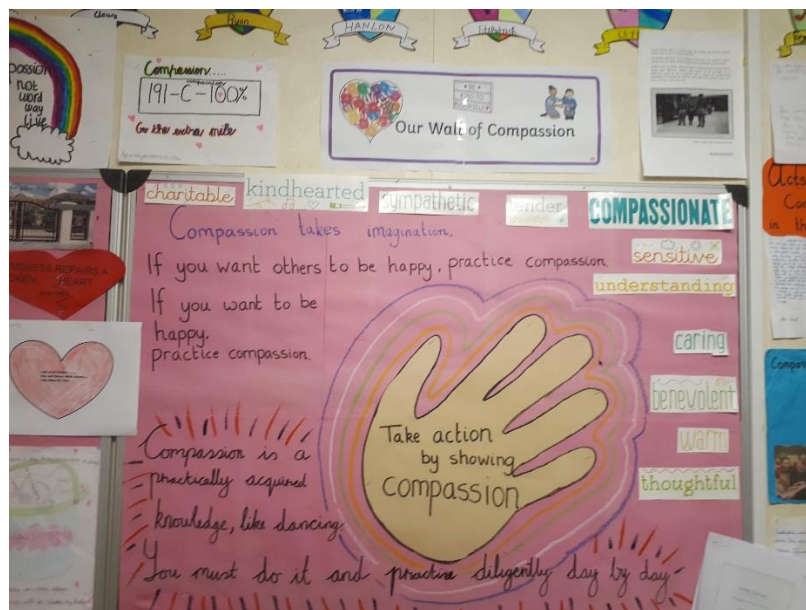 Ryan
HANLON
passion
not
word
way
live
Compassion.....
compassion
191-C-100%
Go the extra mile
Our Wall of Compassion
charitable
kindhearted
sympathetic
tender
COMPASSIONATE
Compassion takes imagination.
If you want others to be happy, practice compassion.
If you want to be
happy,
practice compassion.
sensitive
understanding
caring
benevolent
warm
thoughtful
Take action
by showing
COMPASSION
Compassion is a
practically acquired
knowledge, like dancing.
You must do it and practise diligently day by day.
REPAIRS A
HEART
Acts
in th